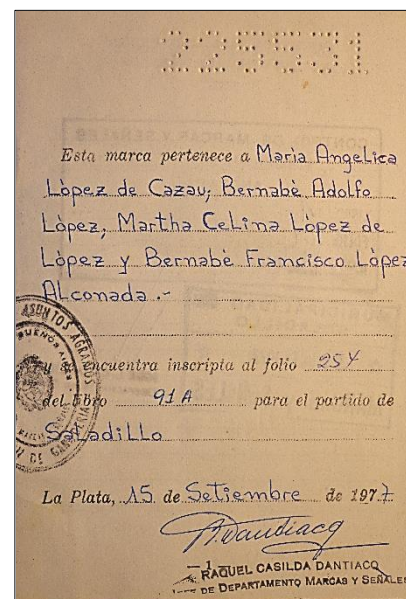 225531
Esta marca pertenece a Maria Angelica
Lòpez de Cazau, Bernabè Adolfo
Lòpez, Martha CeLina Lòpez de
Lòpez y Bernabè Francisco Lòpez
ALconada.-
ASUNTOS AGRARIOS
BUENOS AIRES
y se encuentra inscripta al folio 254
del libro 91 A para el partido de
SaLadiLLo
La Plata, 15 de Setiembre de 1977
RAQUEL CASILDA DANTIACQ
DE DEPARTAMENTO MARCAS Y SEÑALES